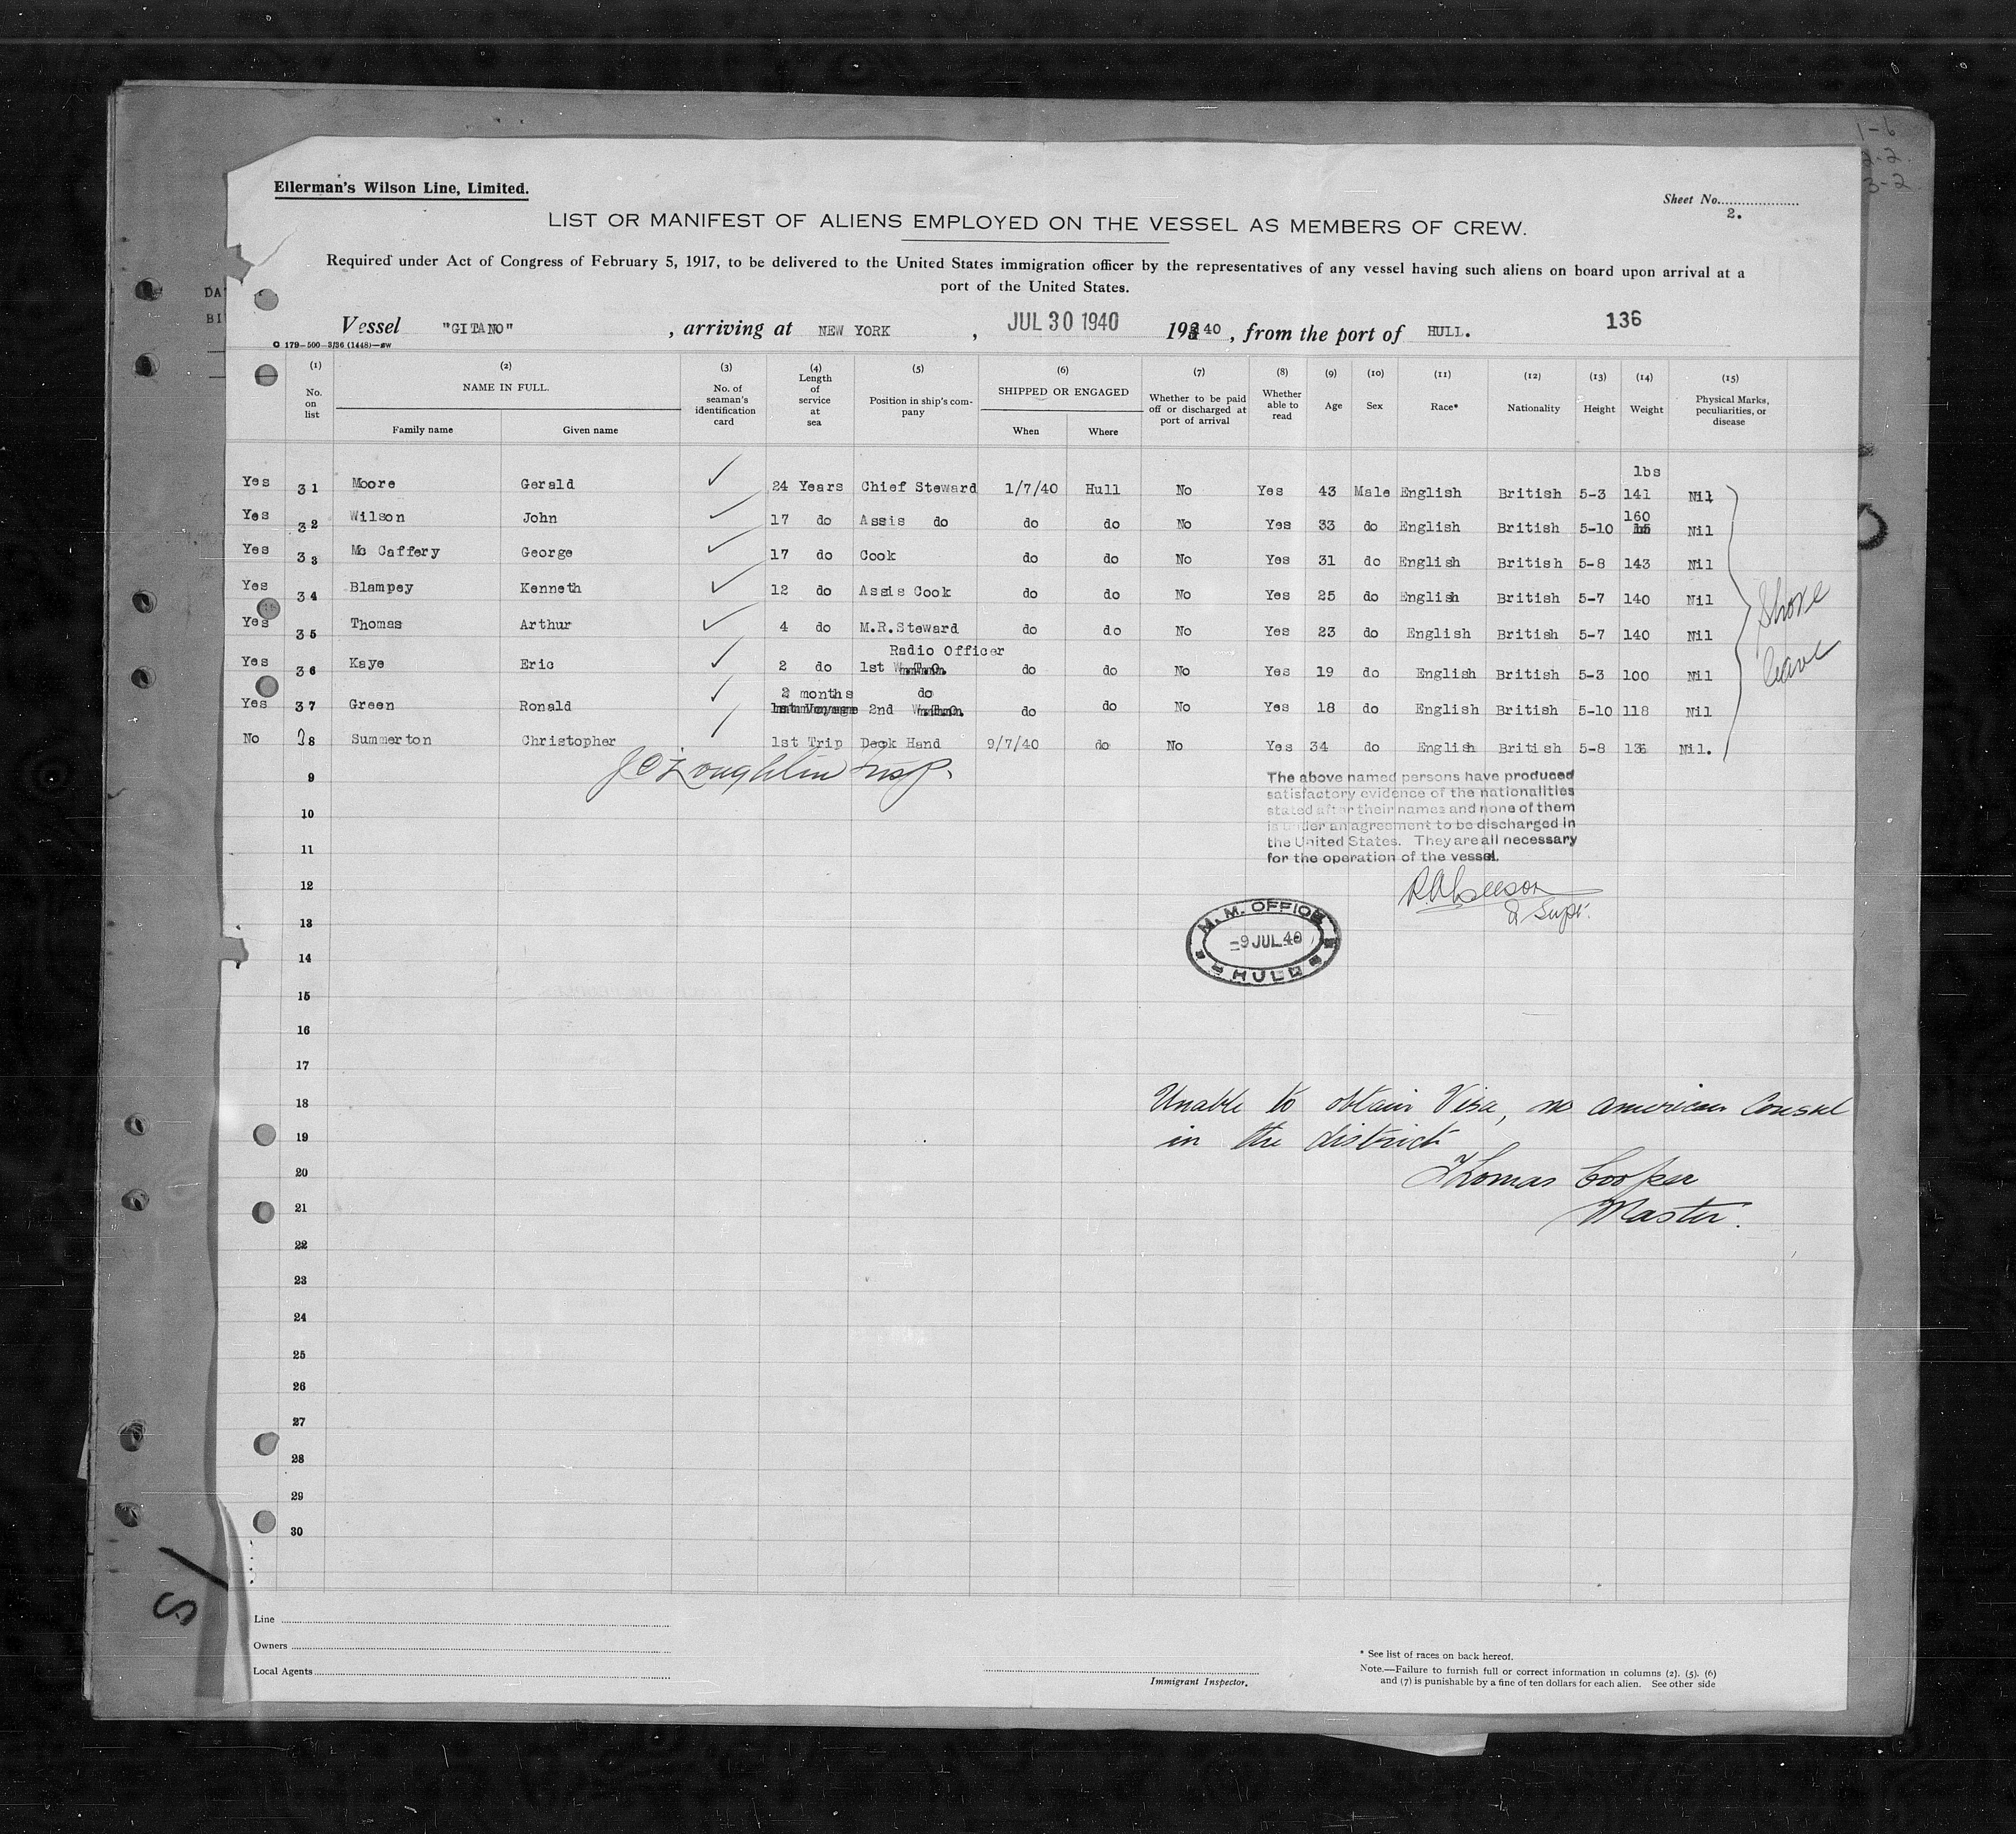 1-6
2-2.
3-2
Ellerman's Wilson Line, Limited.
Sheet No....................
2.
LIST OR MANIFEST OF ALIENS EMPLOYED ON THE VESSEL AS MEMBERS OF CREW.
Required under Act of Congress of February 5, 1917, to be delivered to the United States immigration officer by the representatives of any vessel having such aliens on board upon arrival at a
port of the United States.
DA
BI
Vessel "GITANO" , arriving at NEW YORK , JUL 30 1940 193 40 , from the port of HULL. 136
O 179-500-3/36 (1448)—EW
(1) No. on list
(2) NAME IN FULL. Family name Given name
(3) No. of seaman's identification card
(4) Length of service at sea
(5) Position in ship's company
(6) SHIPPED OR ENGAGED When Where
(7) Whether to be paid off or discharged at port of arrival
(8) Whether able to read
(9) Age
(10) Sex
(11) Race*
(12) Nationality
(13) Height
(14) Weight
(15) Physical Marks, peculiarities, or disease
lbs
Yes 31 Moore Gerald 24 Years Chief Steward 1/7/40 Hull No Yes 43 Male English British 5-3 141 Nil
Yes 32 Wilson John 17 do Assis do do do No Yes 33 do English British 5-10 160 Nil
Yes 33 Mc Caffery George 17 do Cook do do No Yes 31 do English British 5-8 143 Nil
Yes 34 Blampey Kenneth 12 do Assis Cook do do No Yes 25 do English British 5-7 140 Nil
Yes 35 Thomas Arthur 4 do M.R.Steward do do No Yes 23 do English British 5-7 140 Nil
Radio Officer
Yes 36 Kaye Eric 2 do 1st do do No Yes 19 do English British 5-3 100 Nil
2 months do
Yes 37 Green Ronald 2nd do do No Yes 18 do English British 5-10 118 Nil
No 38 Summerton Christopher 1st Trip Deck Hand 9/7/40 do No Yes 34 do English British 5-8 136 Nil.
Shore
leave
J O'Loughlin Insp.
9
10
11
12
13
14
15
16
17
18
19
20
21
22
23
24
25
26
27
28
29
30
The above named persons have produced
satisfactory evidence of the nationalities
stated after their names and none of them
is under an agreement to be discharged in
the United States. They are all necessary
for the operation of the vessel.
Supt.
M. M. OFFICE
-9 JUL 40
HULL
Unable to obtain Visa, no American Consul
in the district
Thomas Cooper
Master.
Line
Owners
Local Agents
Immigrant Inspector.
* See list of races on back hereof.
Note.—Failure to furnish full or correct information in columns (2). (5). (6)
and (7) is punishable by a fine of ten dollars for each alien. See other side